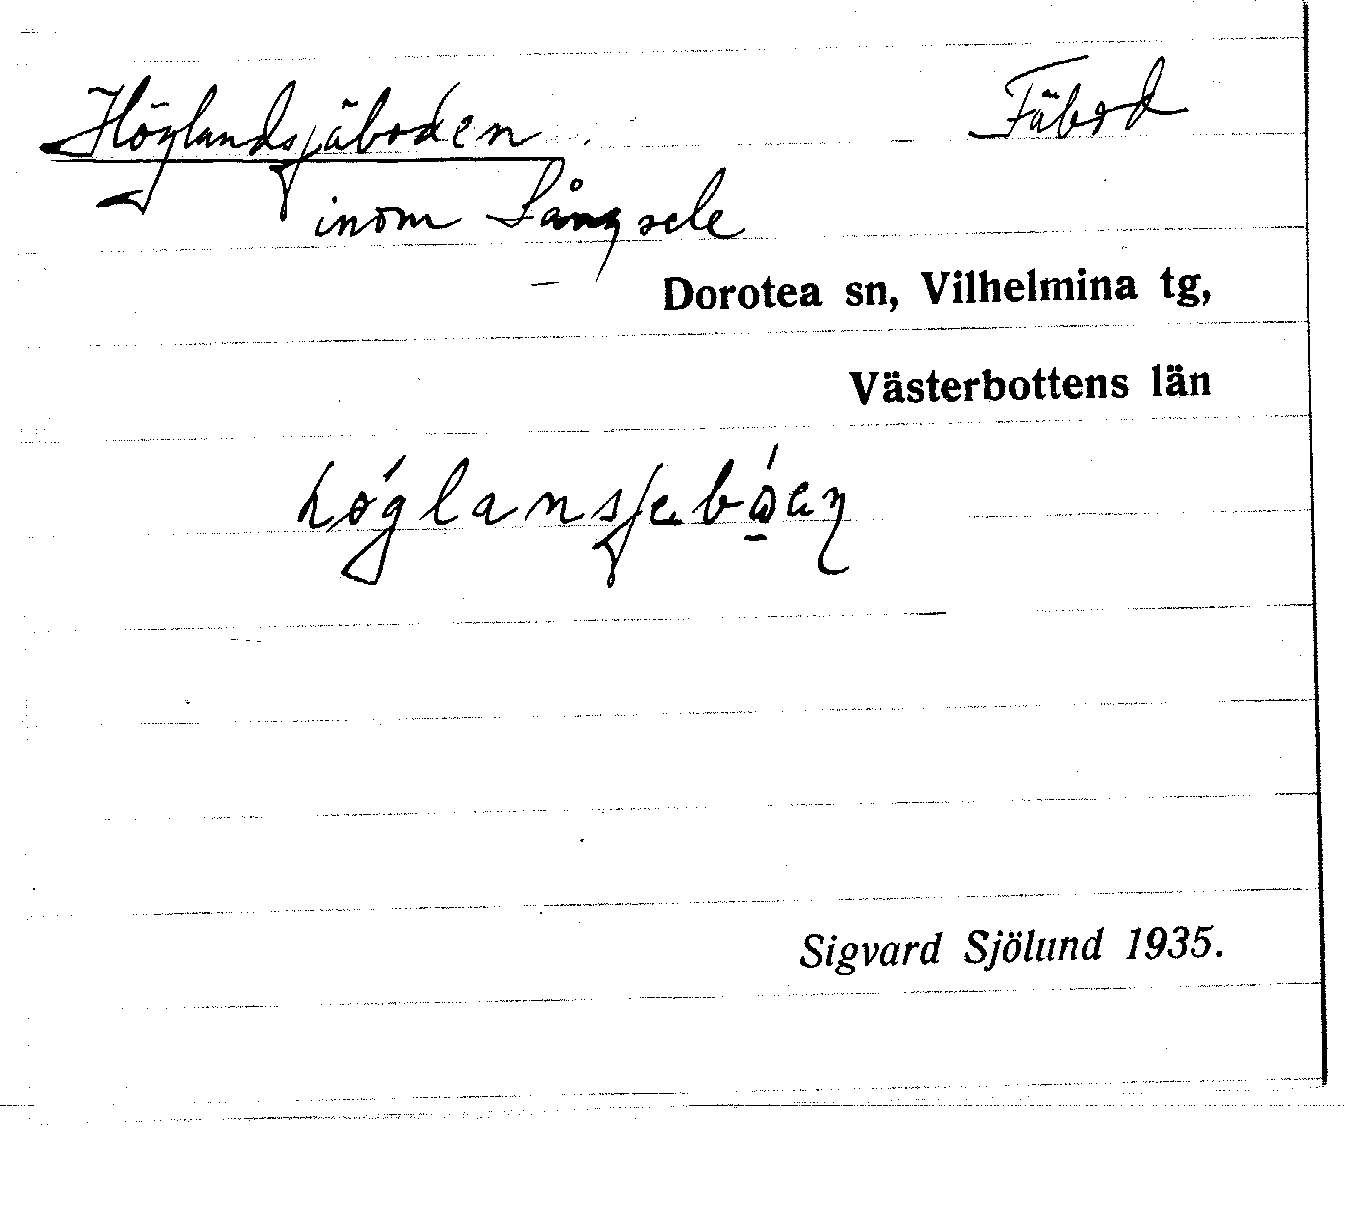 Höglandsfäboden Fäbod
inom Långsele
Dorotea sn, Vilhelmina tg,
Västerbottens län
Sigvard Sjölund 1935.